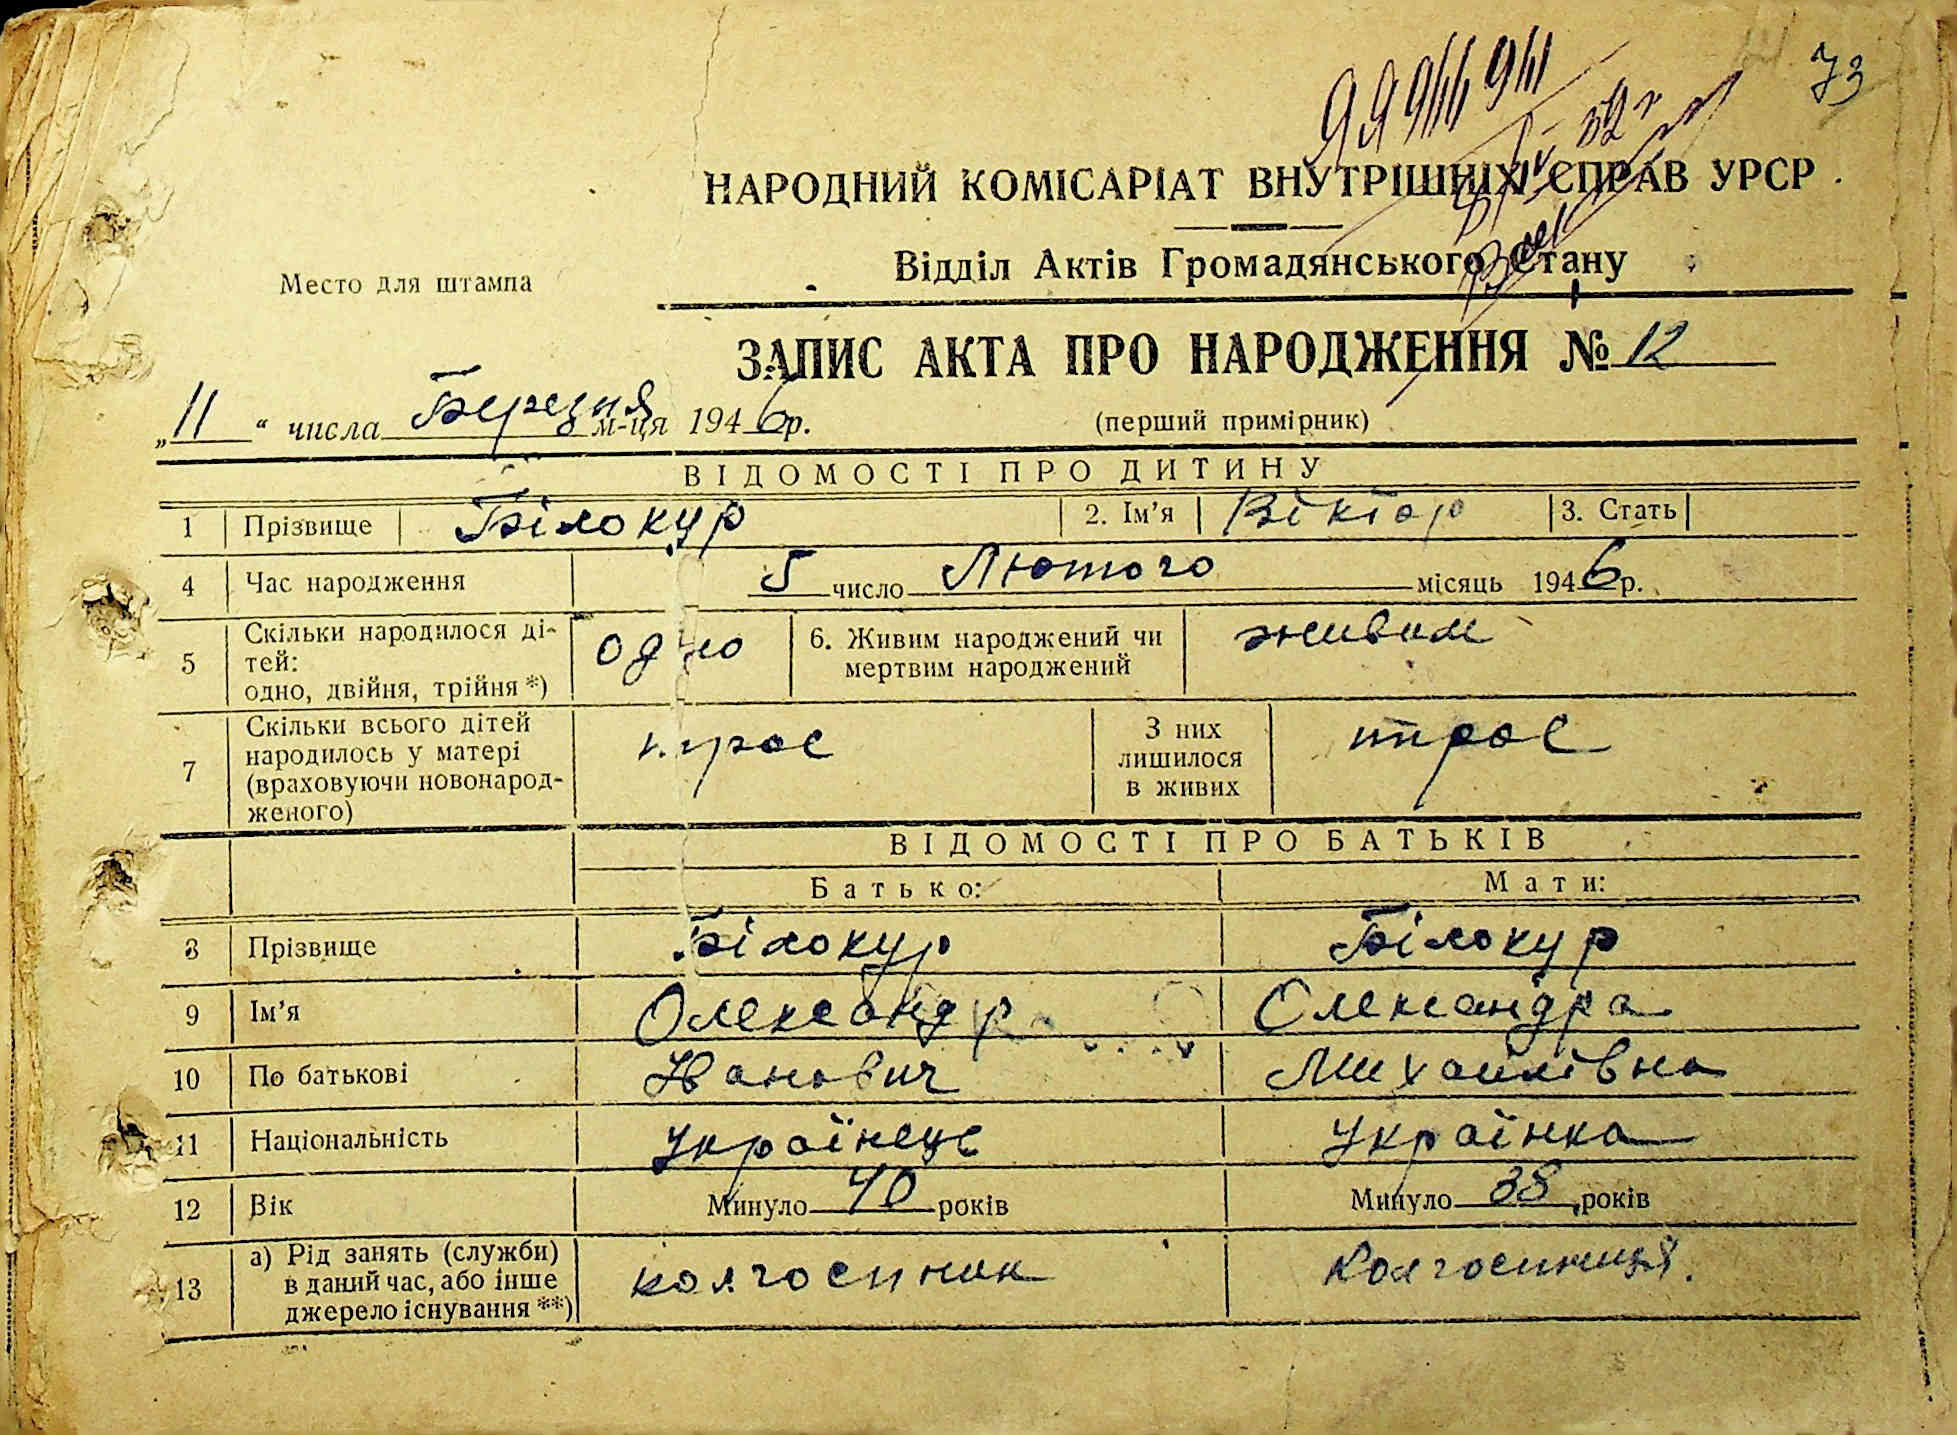 73
НАРОДНИЙ КОМІСАРІАТ ВНУТРІШНІХ СПРАВ УРСР
Відділ Актів Громадянського Стану
Место для штампа
ЗАПИС АКТА ПРО НАРОДЖЕННЯ № 12
„11“ числа Березня м-ця 1946 р.
(перший примірник)
ВІДОМОСТІ ПРО ДИТИНУ
1 Прізвище Білокур 2. Ім'я Віктор 3. Стать
4 Час народження 5 число Лютого місяць 1946 р.
5 Скільки народилося ді-
тей:
одно, двійня, трійня *) одно 6. Живим народжений чи
мертвим народжений живим
7 Скільки всього дітей
народилось у матері
(враховуючи новонарод-
женого) троє З них
лишилося
в живих троє
ВІДОМОСТІ ПРО БАТЬКІВ
Батько: Мати:
8 Прізвище Білокур Білокур
9 Ім'я Олександр Олександра
10 По батькові Іванович Михайлівна
11 Національність Українець Українка
12 Вік Минуло 40 років Минуло 38 років
13 а) Рід занять (служби)
в даний час, або інше
джерело існування **) колгоспник Колгоспниця.